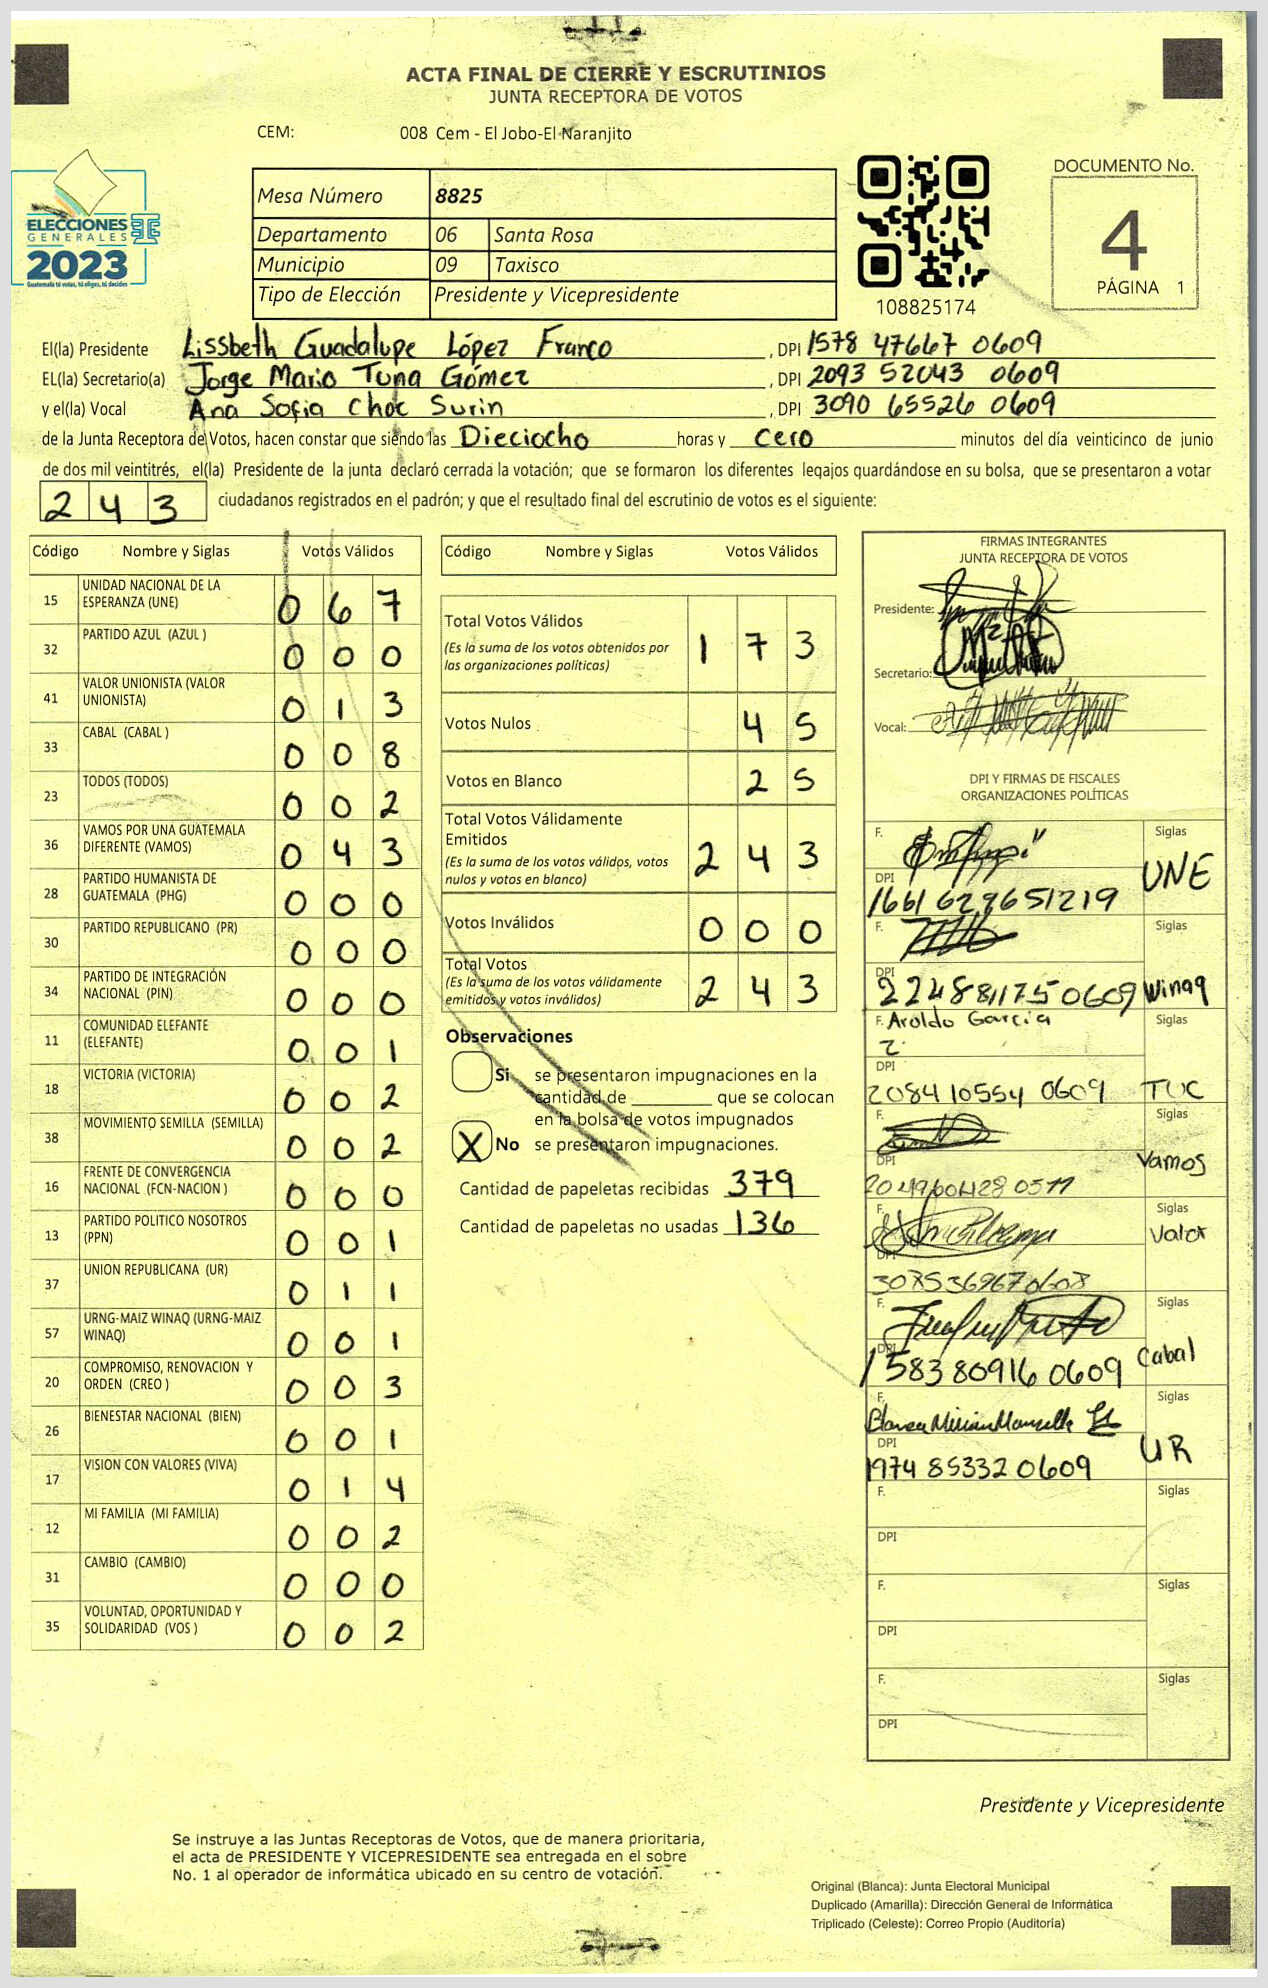 ACTA FINAL DE CIERRE Y ESCRUTINIOS
JUNTA RECEPTORA DE VOTOS
CEM: 008 Cem - El Jobo-El Naranjito
ELECCIONES
GENERALES
2023
Guatemala tú votas, tú eliges, tú decides
Mesa Número 8825
Departamento 06 Santa Rosa
Municipio 09 Taxisco
Tipo de Elección Presidente y Vicepresidente
108825174
DOCUMENTO No.
4
PÁGINA 1
El(la) Presidente Lissbeth Guadalupe López Franco , DPI 1578 47667 0609
EL(la) Secretario(a) Jorge Mario Tuna Gómez , DPI 2093 52043 0609
y el(la) Vocal Ana Sofia Choc Surin , DPI 3090 65526 0609
de la Junta Receptora de Votos, hacen constar que siendo las Dieciocho horas y cero minutos del día veinticinco de junio
de dos mil veintitrés, el(la) Presidente de la junta declaró cerrada la votación; que se formaron los diferentes legajos guardándose en su bolsa, que se presentaron a votar
243 ciudadanos registrados en el padrón; y que el resultado final del escrutinio de votos es el siguiente:
Código Nombre y Siglas Votos Válidos
15 UNIDAD NACIONAL DE LA ESPERANZA (UNE) 0 6 7
32 PARTIDO AZUL (AZUL ) 0 0 0
41 VALOR UNIONISTA (VALOR UNIONISTA) 0 1 3
33 CABAL (CABAL ) 0 0 8
23 TODOS (TODOS) 0 0 2
36 VAMOS POR UNA GUATEMALA DIFERENTE (VAMOS) 0 4 3
28 PARTIDO HUMANISTA DE GUATEMALA (PHG) 0 0 0
30 PARTIDO REPUBLICANO (PR) 0 0 0
34 PARTIDO DE INTEGRACIÓN NACIONAL (PIN) 0 0 0
11 COMUNIDAD ELEFANTE (ELEFANTE) 0 0 1
18 VICTORIA (VICTORIA) 0 0 2
38 MOVIMIENTO SEMILLA (SEMILLA) 0 0 2
16 FRENTE DE CONVERGENCIA NACIONAL (FCN-NACION ) 0 0 0
13 PARTIDO POLITICO NOSOTROS (PPN) 0 0 1
37 UNION REPUBLICANA (UR) 0 1 1
57 URNG-MAIZ WINAQ (URNG-MAIZ WINAQ) 0 0 1
20 COMPROMISO, RENOVACION Y ORDEN (CREO ) 0 0 3
26 BIENESTAR NACIONAL (BIEN) 0 0 1
17 VISION CON VALORES (VIVA) 0 1 4
12 MI FAMILIA (MI FAMILIA) 0 0 2
31 CAMBIO (CAMBIO) 0 0 0
35 VOLUNTAD, OPORTUNIDAD Y SOLIDARIDAD (VOS ) 0 0 2
Código Nombre y Siglas Votos Válidos
Total Votos Válidos 1 7 3
(Es la suma de los votos obtenidos por
las organizaciones políticas)
Votos Nulos 4 5
Votos en Blanco 2 5
Total Votos Válidamente
Emitidos 2 4 3
(Es la suma de los votos válidos, votos
nulos y votos en blanco)
Votos Inválidos 0 0 0
Total Votos
(Es la suma de los votos válidamente
emitidos y votos inválidos) 2 4 3
Observaciones
Si se presentaron impugnaciones en la
cantidad de ________ que se colocan
en la bolsa de votos impugnados
X No se presentaron impugnaciones.
Cantidad de papeletas recibidas 379
Cantidad de papeletas no usadas 136
FIRMAS INTEGRANTES
JUNTA RECEPTORA DE VOTOS
Presidente:
Secretario:
Vocal:
DPI Y FIRMAS DE FISCALES
ORGANIZACIONES POLÍTICAS
F. Siglas
DPI UNE
1661 629651219
F. Siglas
DPI
2248811750609 Winaq
F. Aroldo García Siglas
DPI
2084 10554 0609 TUC
F. Siglas
DPI Vamos
F. Siglas
DPI Valor
3085369670608
F. Siglas
DPI Cabal
1583 80916 0609
F. Siglas
DPI UR
1974 85332 0609
F. Siglas
DPI
F. Siglas
DPI
F. Siglas
DPI
Presidente y Vicepresidente
Se instruye a las Juntas Receptoras de Votos, que de manera prioritaria,
el acta de PRESIDENTE Y VICEPRESIDENTE sea entregada en el sobre
No. 1 al operador de informática ubicado en su centro de votación.
Original (Blanca): Junta Electoral Municipal
Duplicado (Amarilla): Dirección General de Informática
Triplicado (Celeste): Correo Propio (Auditoría)